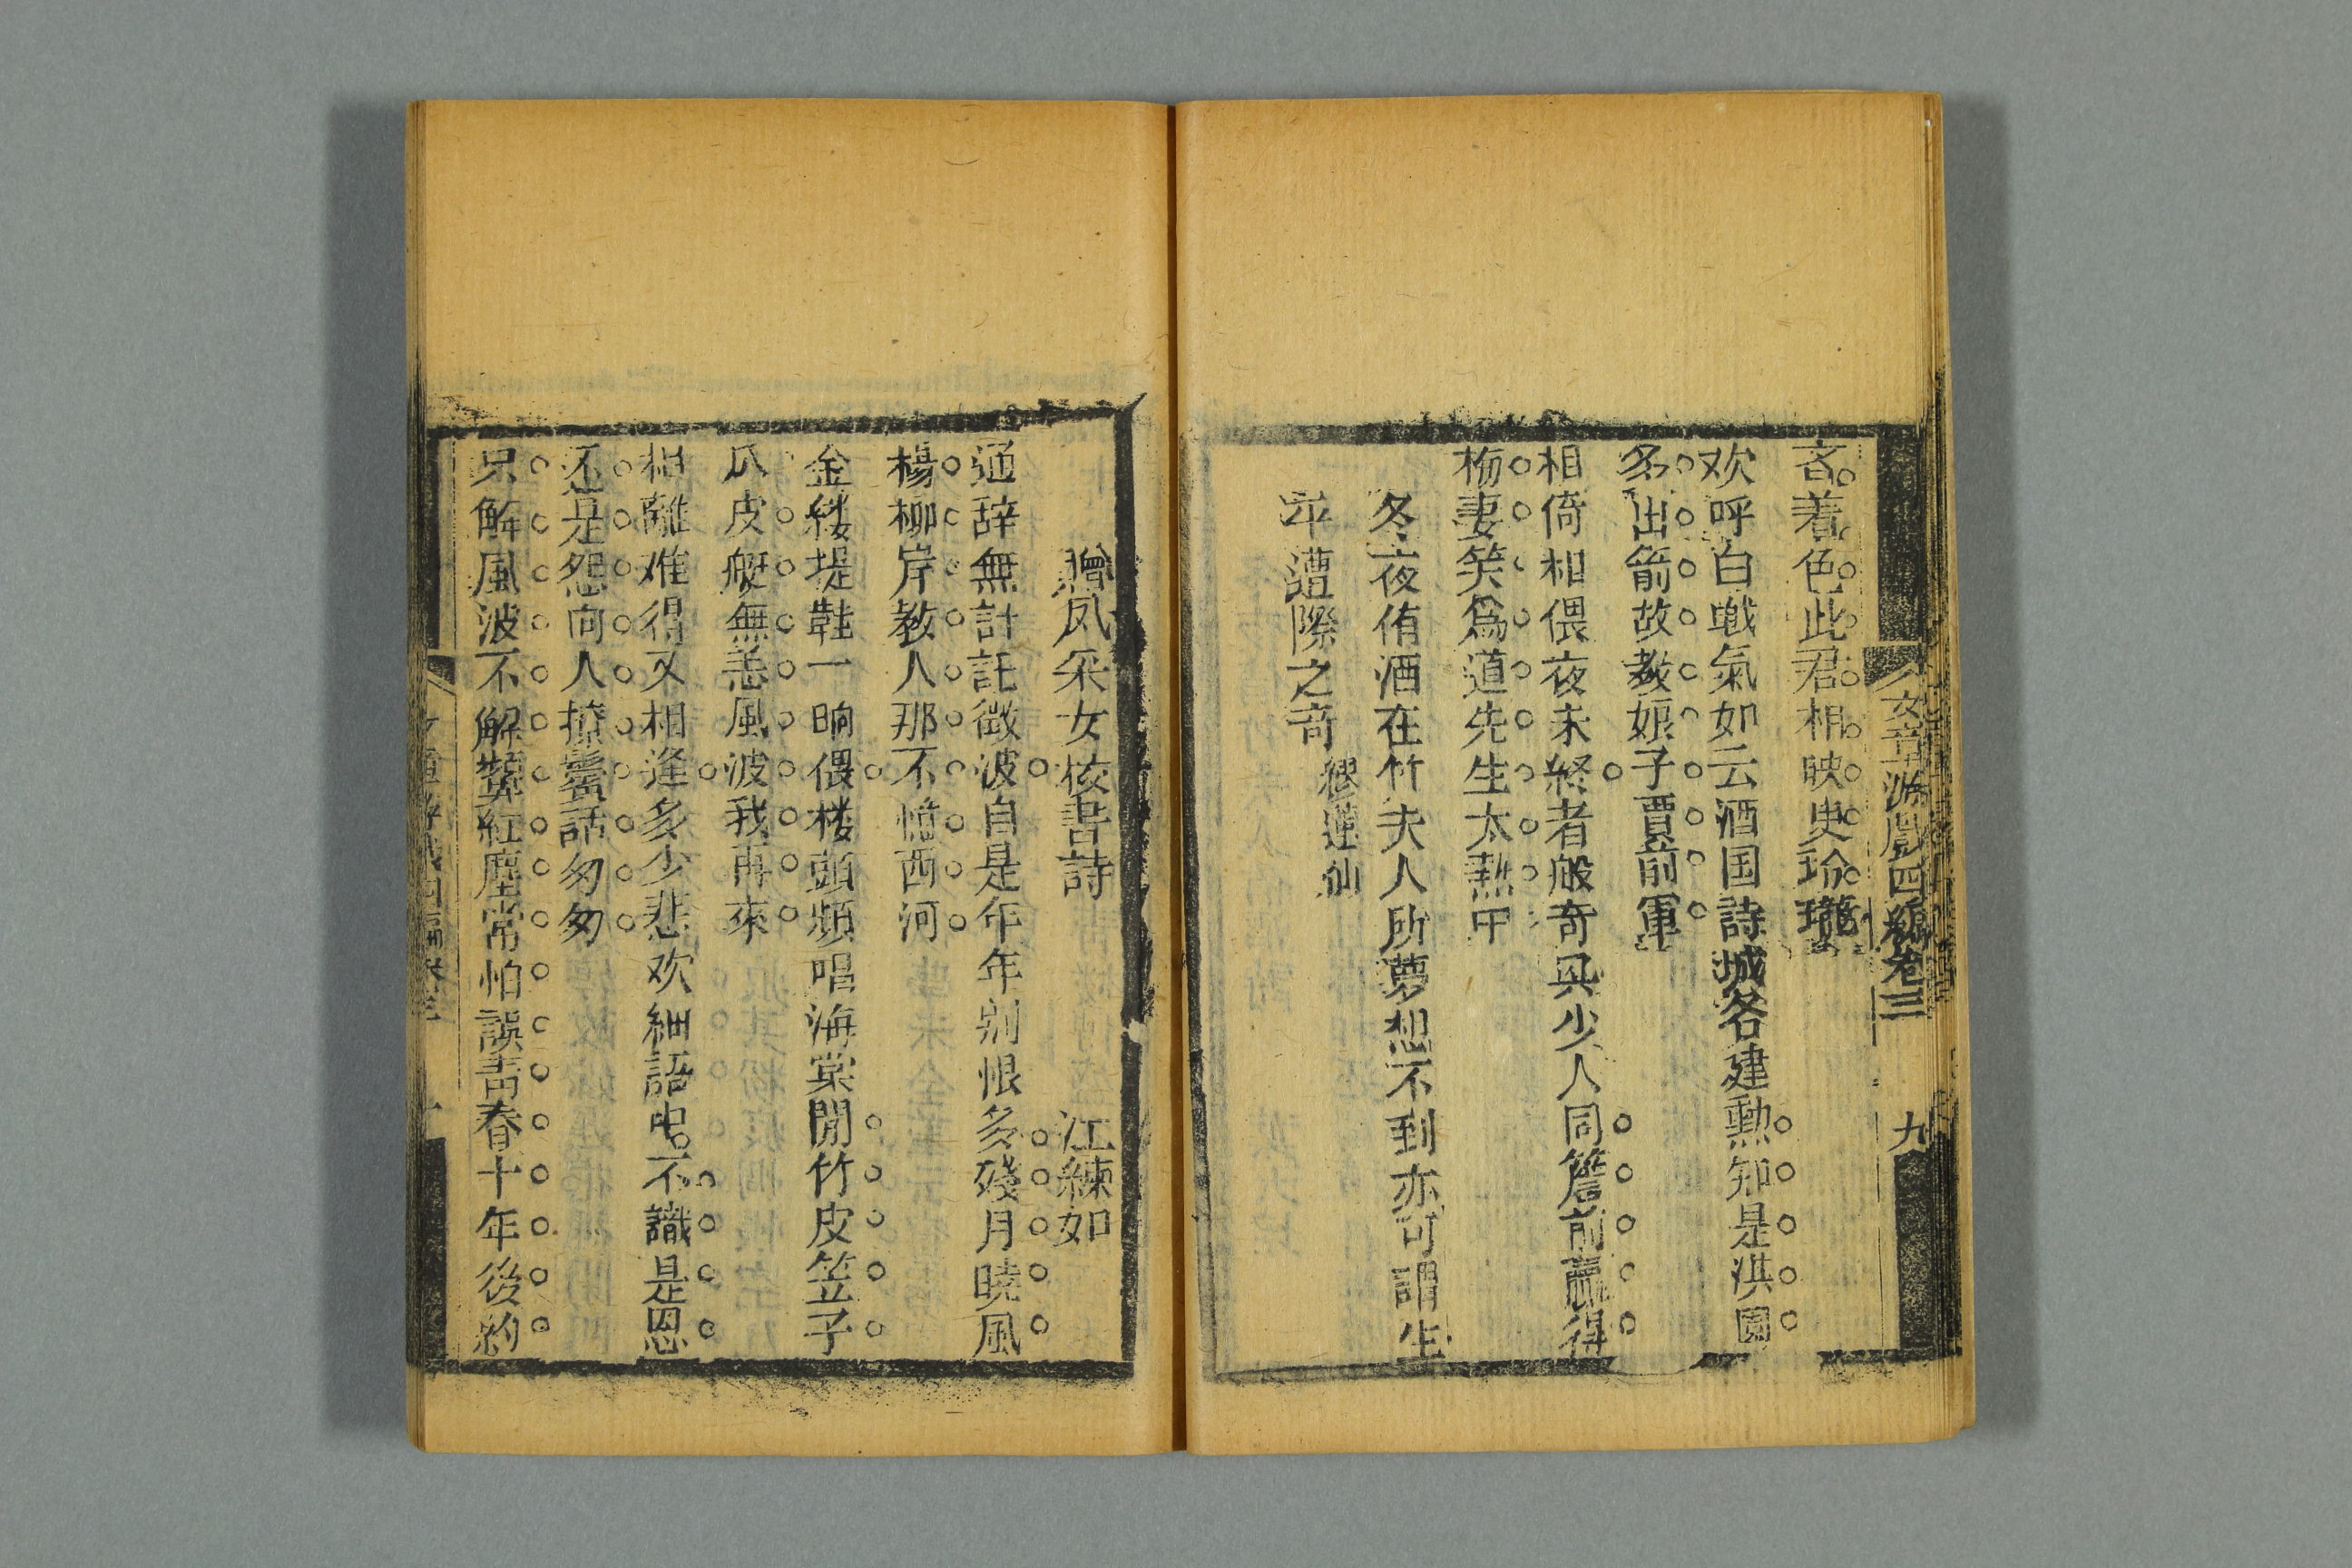 文章游戲四編卷三
九
吝着色此君相映史玲瓏
欢呼白戰氣如云酒国詩城各建勲知是淇園
多出箭故教娘子賈前軍
相倚相偎夜未終者般奇里少人同簷前贏得
梅妻笑爲道先生太熱中
冬夜侑酒在竹夫人所夢想不到亦可謂生
平遭際之奇
繆蓮仙
贈凤采女校書詩
江練如
通辞無計託微波自是年年别恨多殘月曉風
楊柳岸教人那不憶西河
金縷堤鞋一晌偎楼頭頻唱海棠開竹皮笠子
瓜皮艇無恙風波我再來
相離难得又相逢多少悲欢細語中不識是恩
不是怨向人撩鬢話匆匆
只解風波不解顰紅塵常怕誤青春十年後約